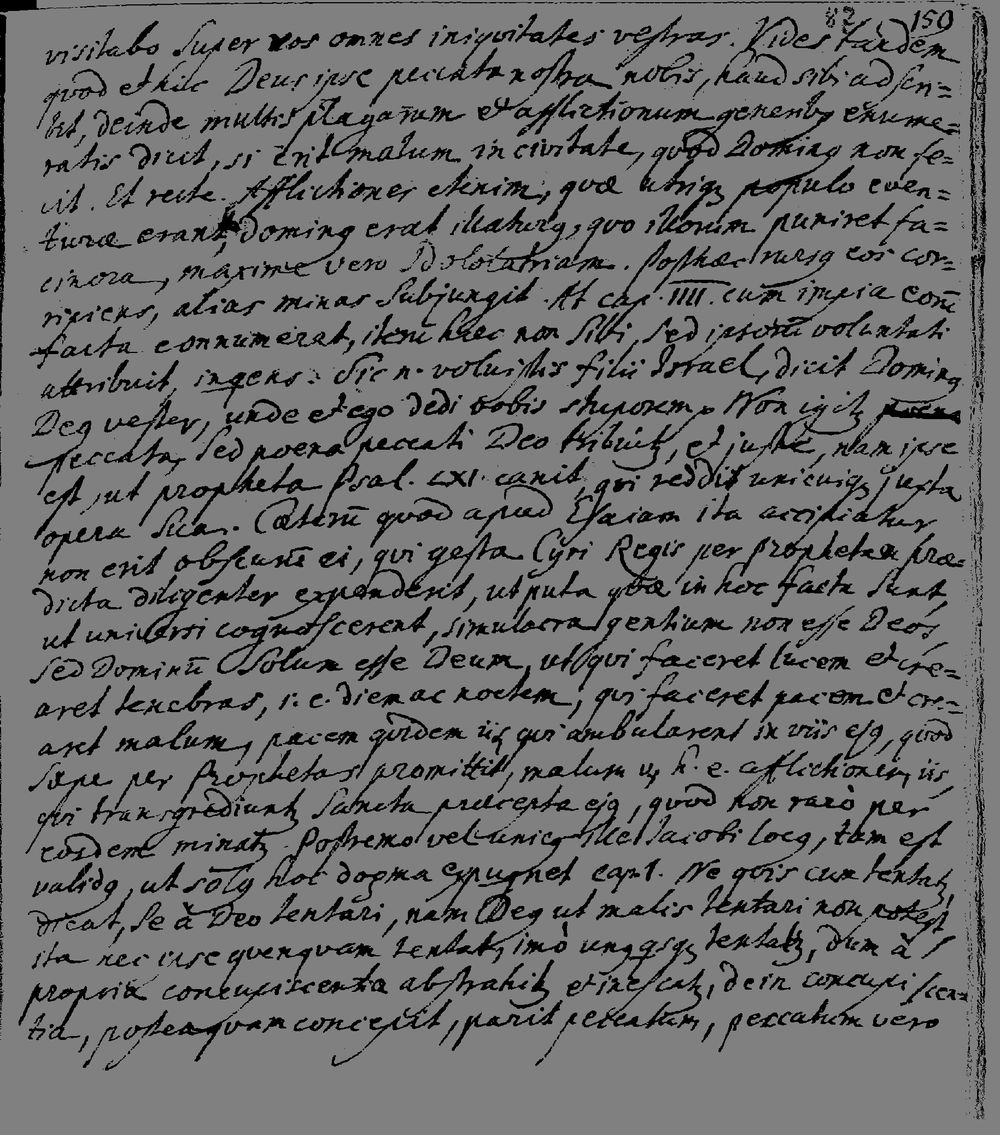 82 150
visitabo super vos omnes iniqvitates vestras. Vides tandem
qvod et hic Deus ipse peccata nostra nobis, haud sibi adscri=
bit, deinde multis plagarum et afflictionum generibꝫ enume=
ratis dicit, si erit malum in civitate, qvod Dominꝰ non fe=
cit. Et recte. Afflictiones etenim, qvæ utriqꝫ populo even=
turæ erant, dominꝰ erat illaturꝰ, qvo illorum puniret fa=
cinora, maxime vero Idololatriam. Posthæc rursꝰ eos cor=
ripiens, alias minas subjungit. At cap. IIII. cum impia eorū
facta connumerat, item hæc non sibi, sed ipsorū voluntati
attribuit, inqens: Sic n. voluistis filii Israel, dicit Dominꝰ
Deꝰ vester, unde et ego dedi vobis stuporem. Non igitꝫ
peccata, sed poena peccati Deo tribuitꝫ, et juste, nam ipse
est, ut propheta Psal. LXI. canit, qvi reddit unicuiqꝫ juxta
opera sua. Cæterū qvod apud Esaiam ita accipiatur
non erit obscurū ei, qvi gesta Cyri Regis per Prophetam præ=
dicta diligenter expenderit, ut puta qvæ in hoc facta sunt,
ut universi cognoscerent, simulacra gentium non esse Deos,
sed Dominū solum esse Deum, ut qvi faceret lucem et cre=
aret tenebras, i. e. diem ac noctem, qvi faceret pacem et cre=
aret malum, pacem qvidem iis qvi ambularent in viis ejꝰ, qvod
sæpe per Prophetas promittit, malum v. h. e. afflictiones, iis,
qvi transgrediuntꝫ sancta præcepta ejꝰ, qvod non rarò per
eosdem minatꝫ. Postremo vel unicꝰ ille Jacobi locꝰ, tam est
validꝰ, ut solꝰ hoc dogma expugnet cap. 1. Ne qvis cum tentatꝫ,
dicat, se à Deo tentari, nam Deꝰ ut malis tentari non potest
ita nec ipse qvenqvam tentat, imò unqꝰqsqꝫ tentatꝫ, dum à
propria concupiscentia abstrahitꝫ et inescatꝫ, dein concupiscen=
tia, posteaqvam concepit, parit peccatum, peccatum vero